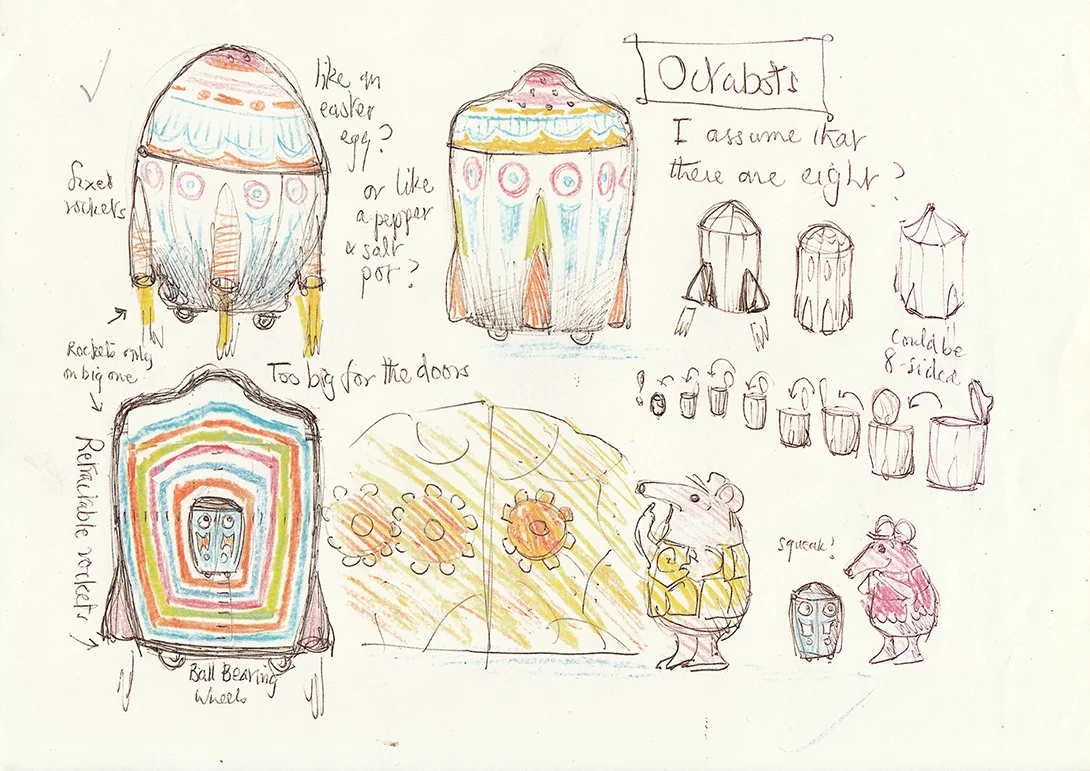 Octabots
I assume that
there are eight?
like an
easter
egg?
or like
a pepper
& salt
pot?
fixed
rockets
Rockets only
on big one
Too big for the doors
Could be
8-sided
!
Retractable rockets
squeak!
Ball Bearing
Wheels